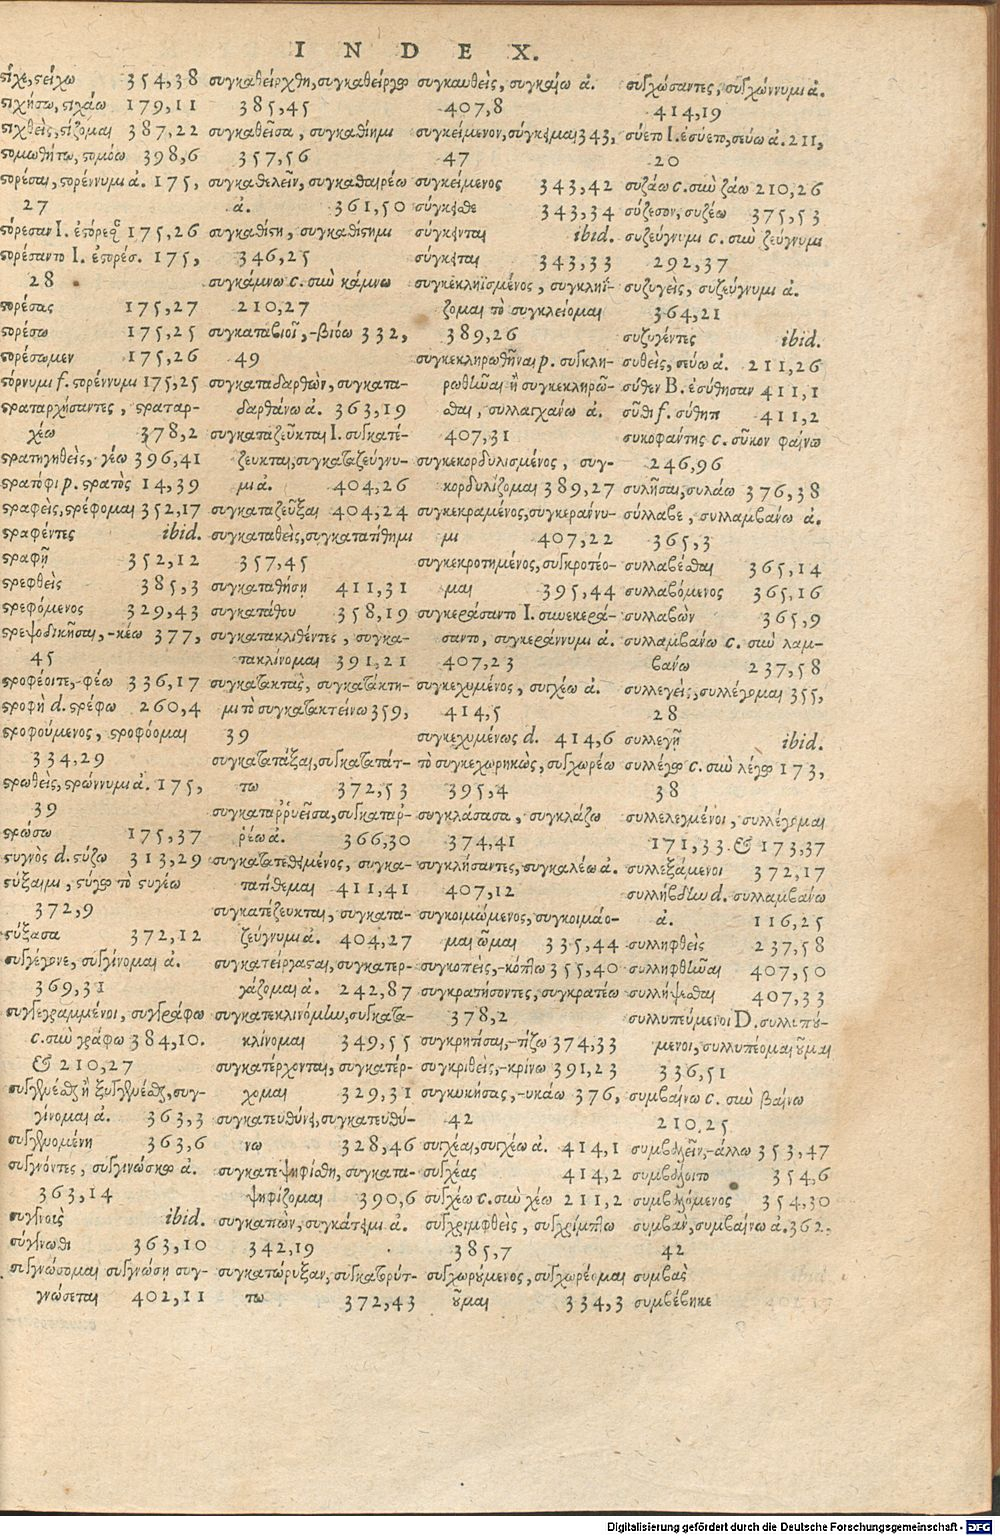 INDEX.
ϛεῖχε, ϛείχω 354,38
ϛιχήσω, ϛιχάω 179,11
ϛιχθεὶς, ϛίζομαι 387,22
ϛομωθήτω, ϛομόω 398,6
ϛορέσαι, ϛορέννυμι ἀ. 175,
27
ϛόρεσαν I. 175,26
ϛορέσαντο I. ἐϛορέσ. 175,
28
ϛορέσας 175,27
ϛορέσω 175,25
ϛορέσωμεν 175,26
ϛόρνυμι f. ϛορέννυμι 175,25
ϛραταρχήσαντες, ϛραταρ-
χέω 378,2
ϛρατηγηθεὶς, γέω 396,41
ϛρατόφι p. ϛρατὸς 14,39
ϛραφεὶς, ϛρέφομαι 352,17
ϛραφέντες ibid.
ϛραφῇ 352,12
ϛρεφθεὶς 385,3
ϛρεφόμενος 329,43
ϛρεψοδικῆσαι, -κέω 377,
45
ϛροφέοιτε, -φέω 336,17
ϛροφὴ d. ϛρέφω 260,4
ϛροφούμενος, ϛροφόομαι
334,29
ϛρωθεὶς, ϛρώννυμι ἀ. 175,
39
ϛρώσω 175,37
ϛυγνὸς d. ϛύζω 313,29
ϛύξαιμι, ϛύγω τὸ ϛυγέω
372,9
ϛύξασα 372,12
συγγέγονε, συγγίνομαι ἀ.
369,31
συγγεγραμμένοι, συγγράφω
c. σὺν γράφω 384,10.
& 210,27
συγγενέσθαι ἢ ξυγγενέσθαι, συγ-
γίνομαι ἀ. 363,3
συγγενομένη 363,6
συγγνόντες, συγγινώσκω ἀ.
363,14
συγγνοὺς ibid.
σύγγνωθι 363,10
συγγνώσομαι συγγνώσῃ συγ-
γνώσεται 402,11
συγκαθείρχθη, συγκαθείργω
385,45
συγκαθεῖσα, συγκαθίημι
357,56
συγκαθελεῖν, συγκαθαιρέω
ἀ. 361,50
συγκαθίϛη, συγκαθίϛημι
346,25
συγκάμνω c. σὺν κάμνω
210,27
συγκαταβιοῖ, -βιόω 332,
49
συγκαταδαρθὼν, συγκατα-
δαρθάνω ἀ. 363,19
συγκαταζεῦκται I. συγκατέ-
ζευκται, συγκαταζεύγνυ-
μι ἀ. 404,26
συγκαταζεῦξαι 404,24
συγκαταθεὶς, συγκατατίθημι
357,45
συγκαταθήσῃ 411,31
συγκατάθου 358,19
συγκατακλιθέντες, συγκα-
τακλίνομαι 391,21
συγκατακτὰς, συγκατάκτη-
μι τὸ συγκατακτείνω 359,
39
συγκατατάξαι, συγκατατάτ-
τω 372,53
συγκαταῤῥυεῖσα, συγκαταῤ-
ῥέω ἀ. 366,30
συγκατατεθειμένος, συγκα-
τατίθεμαι 411,41
συγκατέζευκται, συγκατα-
ζεύγνυμι ἀ. 404,27
συγκατείργασται, συγκατερ-
γάζομαι ἀ. 242,87
συγκατεκλινόμην, συγκατα-
κλίνομαι 349,55
συγκατέρχονται, συγκατέρ-
χομαι 329,31
συγκατευθύνει, συγκατευθύ-
νω 328,46
συγκατεψηφίσθη, συγκατα-
ψηφίζομαι 390,6
συγκατιὼν, συγκάτειμι ἀ.
342,19
συγκατώρυξαν, συγκατορύτ-
τω 372,43
συγκαυθεὶς, συγκαίω ἀ.
407,8
συγκείμενον, σύγκειμαι 343,
47
συγκείμενος 343,42
σύγκεισθε 343,34
σύγκεινται ibid.
σύγκειται 343,33
συγκεκληϊσμένος, συγκληΐ-
ζομαι τὸ συγκλείομαι
389,26
συγκεκληρωθῆναι p. συγκλη-
ρωθῆναι ἢ συγκεκληρῶ-
σθαι, συλλαγχάνω ἀ.
407,31
συγκεκορδυλισμένος, συγ-
κορδυλίζομαι 389,27
συγκεκραμένος, συγκεράννυ-
μι 407,22
συγκεκροτημένος, συγκροτέο-
μαι 395,44
συγκεράσαντο I. συνεκερά-
σαντο, συγκεράννυμι ἀ.
407,23
συγκεχυμένος, συγχέω ἀ.
414,5
συγκεχυμένως d. 414,6
τὸ συγκεχωρηκὼς, συγχωρέω
395,4
συγκλάσασα, συγκλάζω
374,41
συγκλήσαντες, συγκαλέω ἀ.
407,12
συγκοιμώμενος, συγκοιμάο-
μαι ῶμαι 335,44
συγκοπεὶς, -κόπτω 355,40
συγκρατήσοντες, συγκρατέω
378,2
συγκρητίσαι, -τίζω 374,33
συγκριθεὶς, -κρίνω 391,23
συγκυκήσας, -υκάω 376,
42
συγχέαι, συγχέω ἀ. 414,1
συγχέας 414,2
συγχέω c. σὺν χέω 211,2
συγχριμφθεὶς, συγχρίμπτω
385,7
συγχωρούμενος, συγχωρέομαι
οῦμαι 334,3
συγχώσαντες, συγχώννυμι ἀ.
414,19
σύετο I. ἐσύετο, σεύω ἀ. 211,
20
συζάω c. σὺν ζάω 210,26
σύζεσον, συζέω 375,53
συζεύγνυμι c. σὺν ζεύγνυμι
292,37
συζυγεὶς, συζεύγνυμι ἀ.
364,21
συζυγέντες ibid.
συθεὶς, σεύω ἀ. 211,26
σύθεν B. ἐσύθησαν 411,1
σῦθι f. σύθητι 411,2
συκοφάντης c. σῦκον φαίνω
246,96
συλῆσαι, συλάω 376,38
σύλλαβε, συλλαμβάνω ἀ.
365,3
συλλαβέσθαι 365,14
συλλαβόμενος 365,16
συλλαβὼν 365,9
συλλαμβάνω c. σὺν λαμ-
βάνω 237,58
συλλεγεὶς, συλλέγομαι 355,
28
συλλεγῇ ibid.
συλλέγω c. σὺν λέγω 173,
38
συλλελεγμένοι, συλλέγομαι
171,33. & 173,37
συλλεξάμενοι 372,17
συλλήβδην d. συλλαμβάνω
ἀ. 116,25
συλληφθεὶς 237,58
συλληφθῆναι 407,50
συλλήψεσθαι 407,33
συλλυπεύμενοι D. συλλυπού-
μενοι, συλλυπέομαι οῦμαι
336,51
συμβαίνω c. σὺν βαίνω
210,25
συμβαλεῖν, -άλλω 353,47
συμβάλοιτο 354,6
συμβαλόμενος 354,30
συμβὰν, συμβαίνω ἀ. 362,
42
συμβὰς
συμβέβηκε
Digitalisierung gefördert durch die Deutsche Forschungsgemeinschaft - DFG